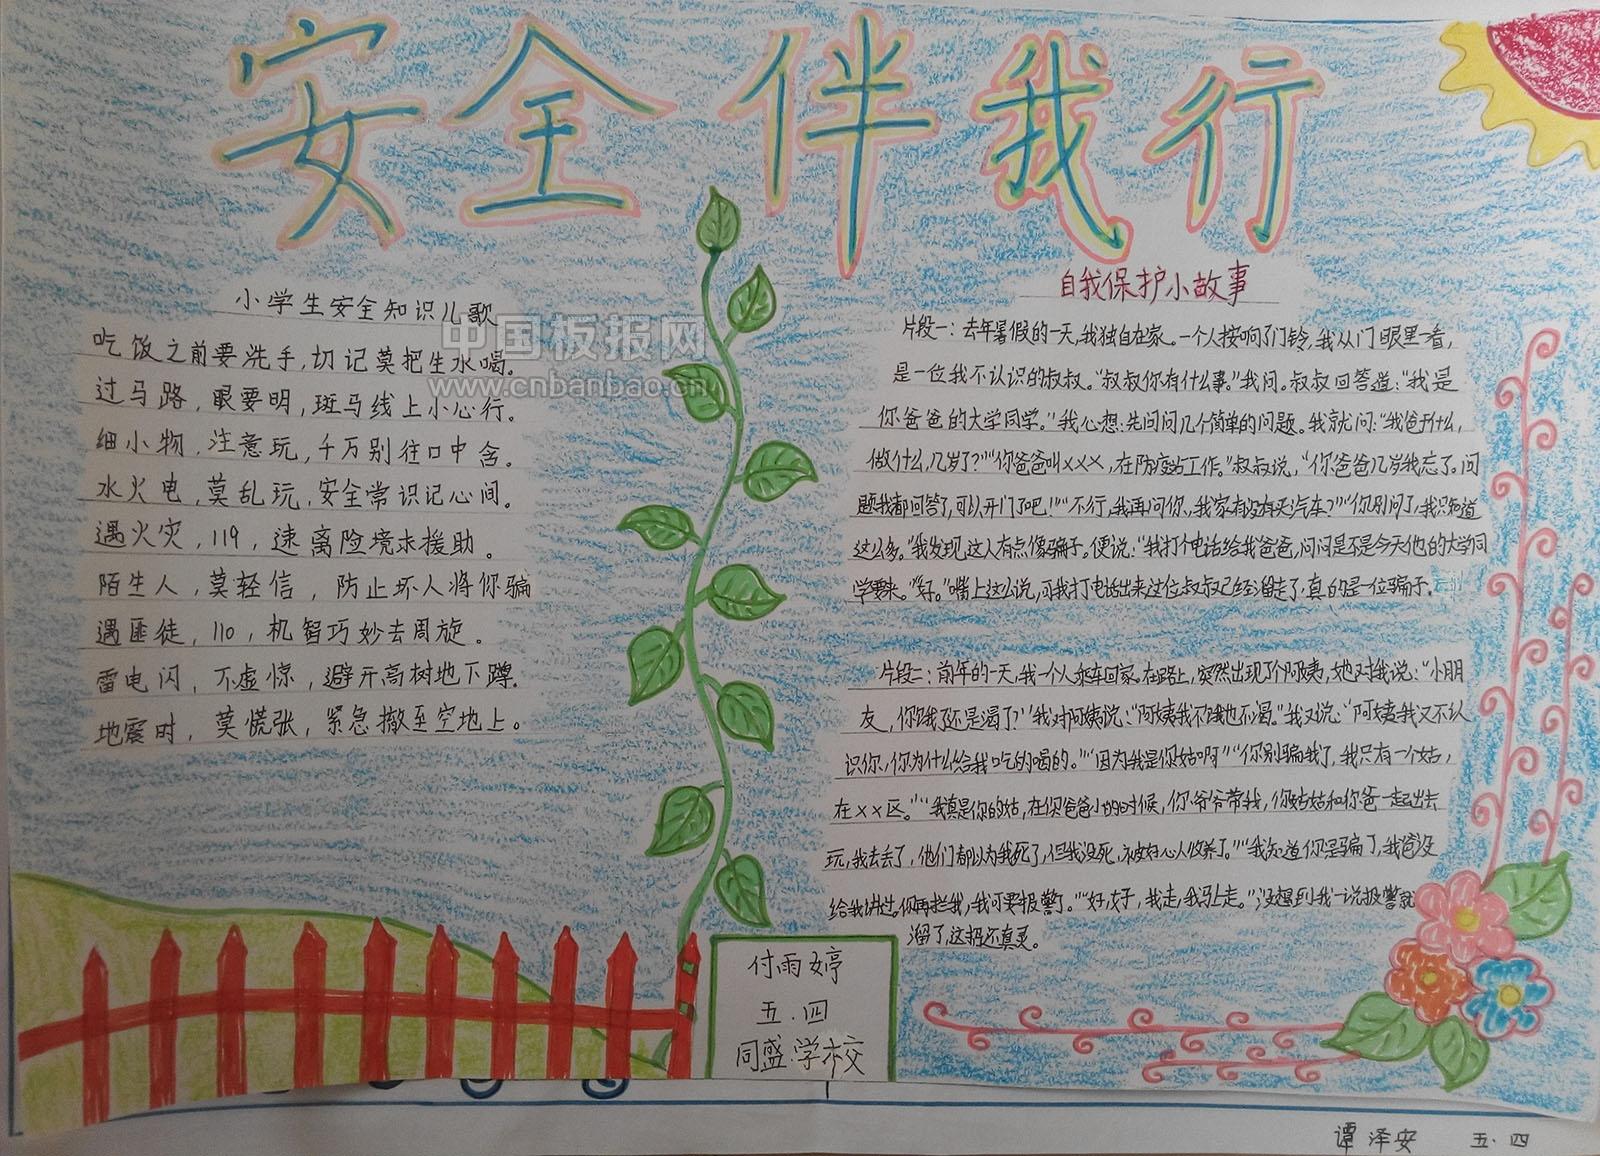 安全伴我行
小学生安全知识儿歌
吃饭之前要洗手,切记莫把生水喝。
过马路,眼要明,斑马线上小心行。
细小物,注意玩,千万别往口中含。
水火电,莫乱玩,安全常识记心间。
遇火灾,119,速离险境求援助。
陌生人,莫轻信,防止坏人将你骗
遇匪徒,110,机智巧妙去周旋。
雷电闪,不虚惊,避开高树地下蹲.
地震时,莫慌张,紧急撤至空地上。
中国板报网
www.cnbanbao.cn
自我保护小故事
片段一:去年暑假的一天,我独自在家。一个人按响了门铃,我从门眼里一看,
是一位我不认识的叔叔。“叔叔你有什么事。”我问。叔叔回答道:“我是
你爸爸的大学同学。”我心想:先问问几个简单的问题。我就问:“我爸叫什么,
做什么,几岁了?”“你爸爸叫×××,在防疫站工作。”叔叔说,“你爸爸几岁我忘了。问
题我都回答了,可以开门了吧!”“不行,我再问你,我家有没有买汽车?”“你别问了,我只知道
这么多。”我发现,这人有点像骗子。便说:“我打个电话给我爸爸,问问是不是今天他的大学同
学要来。”“好。”嘴上这么说,可我打电话出来这位叔叔已经溜走了,真的是一位骗子.
片段二:前年的一天,我一个人乘车回家。在路上,突然出现了个阿姨,她对我说:“小朋
友,你饿了还是渴了?”我对阿姨说:“阿姨我不饿也不渴。”我又说:“阿姨我又不认
识你,你为什么给我吃的喝的。”“因为我是你姑啊”“你别骗我了,我只有一个姑,
在××区。”“我真是你的姑,在你爸爸小的时候,你爷爷带我,你姑姑和你爸一起出去
玩,我去丢了,他们都以为我死了,但我没死,被好心人收养了。”“我知道你是骗了,我爸没
给我讲过。你再拦我,我可要报警了。”“好,好,我走,我马上走。”没想到我一说报警就
溜了,这招还真灵。
付雨婷
五.四
同盛学校
谭泽安 五.四